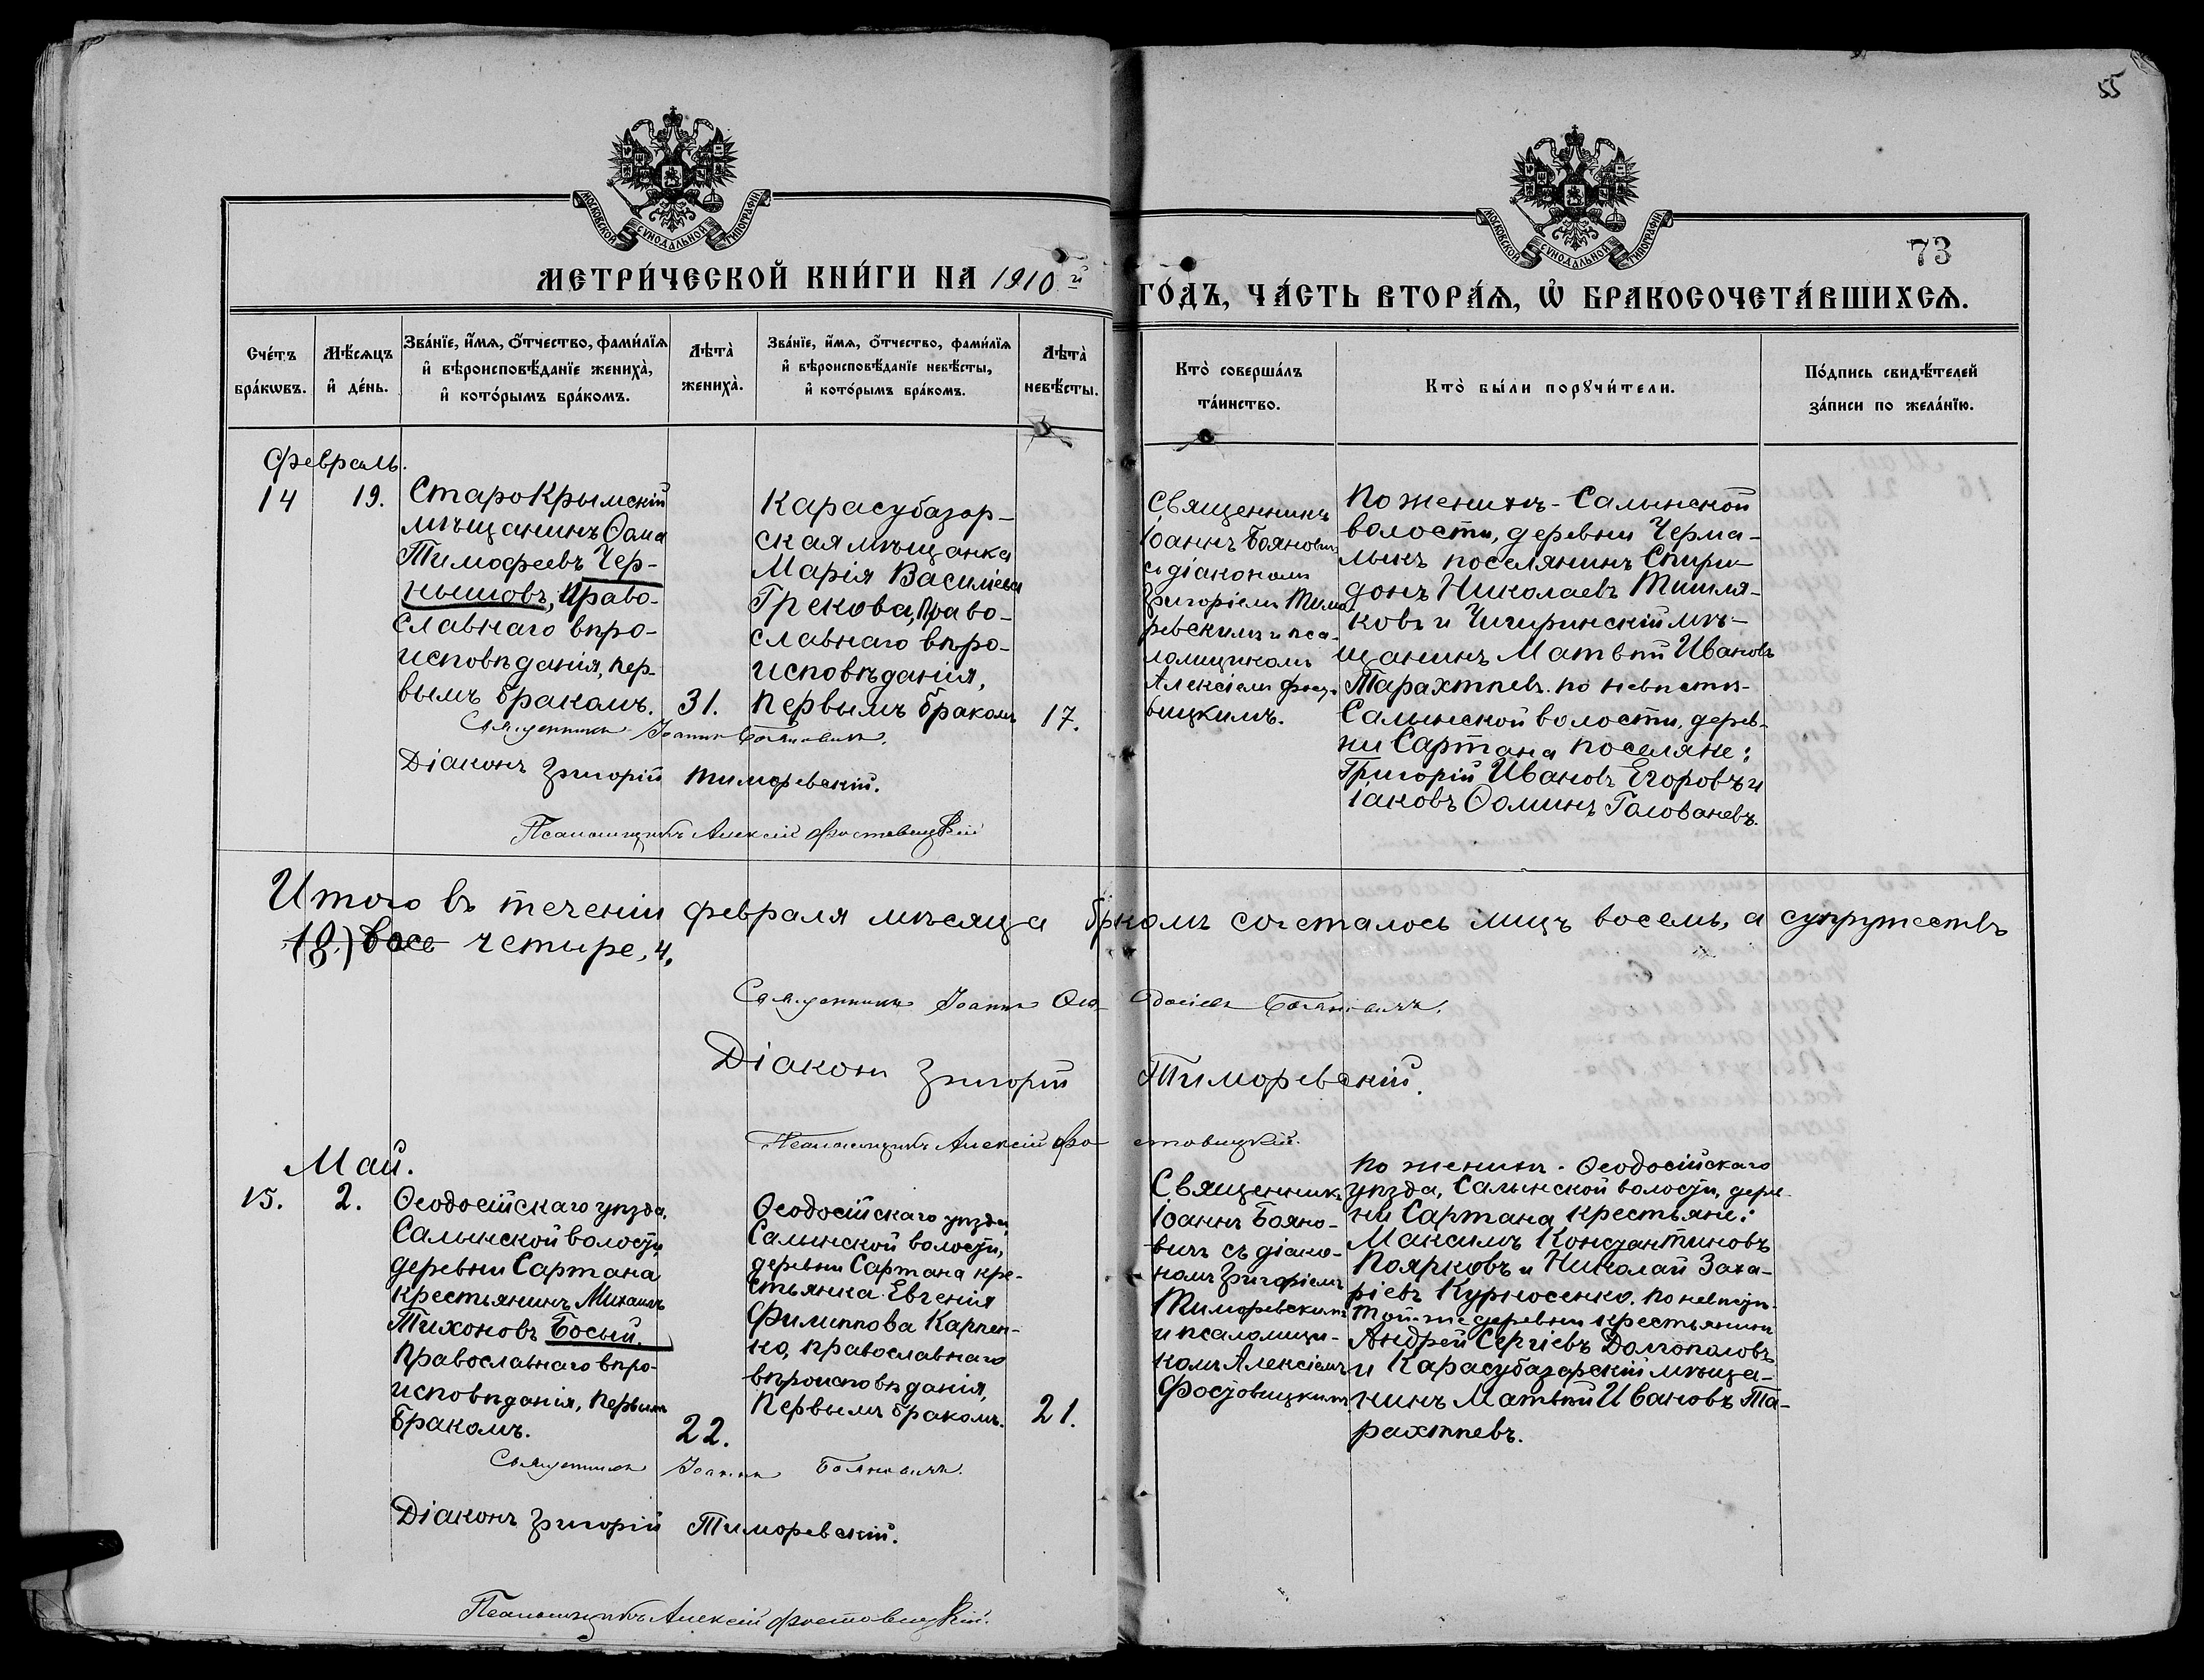 55
МОСКОВСКОЙ СѴНОДАЛЬНОЙ ТИПОГРАФІИ
МОСКОВСКОЙ СѴНОДАЛЬНОЙ ТИПОГРАФІИ
73
МЕТРИ́ЧЕСКОЙ КНИ́ГИ НА 1910 й
ГО́ДЪ, ЧА́СТЬ ВТОРА́Ѧ, Ѡ҆ БРАКОСОЧЕТА́ВШИХСѦ.
Сче́тъ
бра́кѡвъ.
Мѣ́сѧцъ
и҆ де́нь.
Зва́нїе, и҆́мѧ, о҆́тчество, фами́лїѧ
и҆ вѣроисповѣ́данїе жениха̀,
и҆ кото́рымъ бра́комъ.
Лѣта̀
жениха̀.
Зва́нїе, и҆́мѧ, о҆́тчество, фами́лїѧ
и҆ вѣроисповѣ́данїе невѣ́сты,
и҆ кото́рымъ бра́комъ.
Лѣта̀
невѣ́сты.
Кто̀ соверша́лъ
та́инство.
Кто̀ бы́ли порꙋчи́тели.
По́дпись свидѣ́телей
за́писи по жела́нїю.
Февраль.
14
19.
СтароКрымскій
мѣщанинъ Ѳома
Тимофеевъ Чер-
нышовъ, Право-
славнаго вѣро-
исповѣданія, пер-
вымъ бракомъ.
31.
Карасубазар-
ская мѣщанка
Марія Василіева
Грекова, Право-
славнаго вѣро-
исповѣданія,
первымъ бракомъ
17.
Священникъ
Іоаннъ Боянович
съ діакономъ
Григоріемъ Тимо
ревскимъ и пса-
ломщикомъ
Алексіемъ Фосто
вицкимъ.
По женихѣ - Салынской
волости, деревни Черма-
лыкъ поселянинъ Спири-
донъ Николаевъ Тишля-
ковъ и Чигиринскій мѣ-
щанинъ Матвѣй Ивановъ
Тарахтѣевъ. по невѣстѣ-
Салынской волости, дерев-
ни Сартана поселяне:
Григорій Ивановъ Егоровъ и
Іаковъ Ѳоминъ Голованевъ.
Священникъ Іоаннъ Бояновичъ.
Діаконъ Григорій Тиморевскій.
Псаломщикъ Алексій Фостовицкій
Итого въ теченіи февраля мѣсяца бркомъ сочеталось лицъ восемь, а супружествъ
18.) восе четыре, 4,
Священникъ Іоаннъ Ѳеодосіевъ Бояновичъ.
Діаконъ Григорій Тиморевскій.
Псаломщикъ Алексій Фостовицкій.
Май.
15.
2.
Ѳеодосійскаго уѣзда,
Салынской волости,
деревни Сартана
крестьянинъ Михаилъ
Тихоновъ Босый.
Православнаго вѣро-
исповѣданія, первымъ
бракомъ.
22.
Ѳеодосійскаго уѣзда,
Салынской волости,
деревни Сартана кре-
стьянка Евгенія
Филиппова Карпен-
ко, православнаго
вѣроисповѣданія,
первымъ бракомъ.
21.
Священникъ
Іоаннъ Бояно-
вичъ съ діако-
номъ Григоріемъ
Тиморевскимъ
и псаломщи-
комъ Алексіемъ
Фостовицкимъ
По женихѣ - Ѳеодосійскаго
уѣзда, Салынской волости, дерев-
ни Сартана крестьяне:
Максимъ Константиновъ
Поярковъ и Николай Заха-
ріевъ Курносенко. По невѣстѣ-
той-же деревни крестьянинъ
Андрей Сергіевъ Долгополовъ
и Карасубазарскій мѣща-
нинъ Матвѣй Ивановъ Та-
рахтѣевъ.
Священникъ Іоаннъ Бояновичъ.
Діаконъ Григорій Тиморевскій.
Псаломщикъ Алексій Фостовицкій.